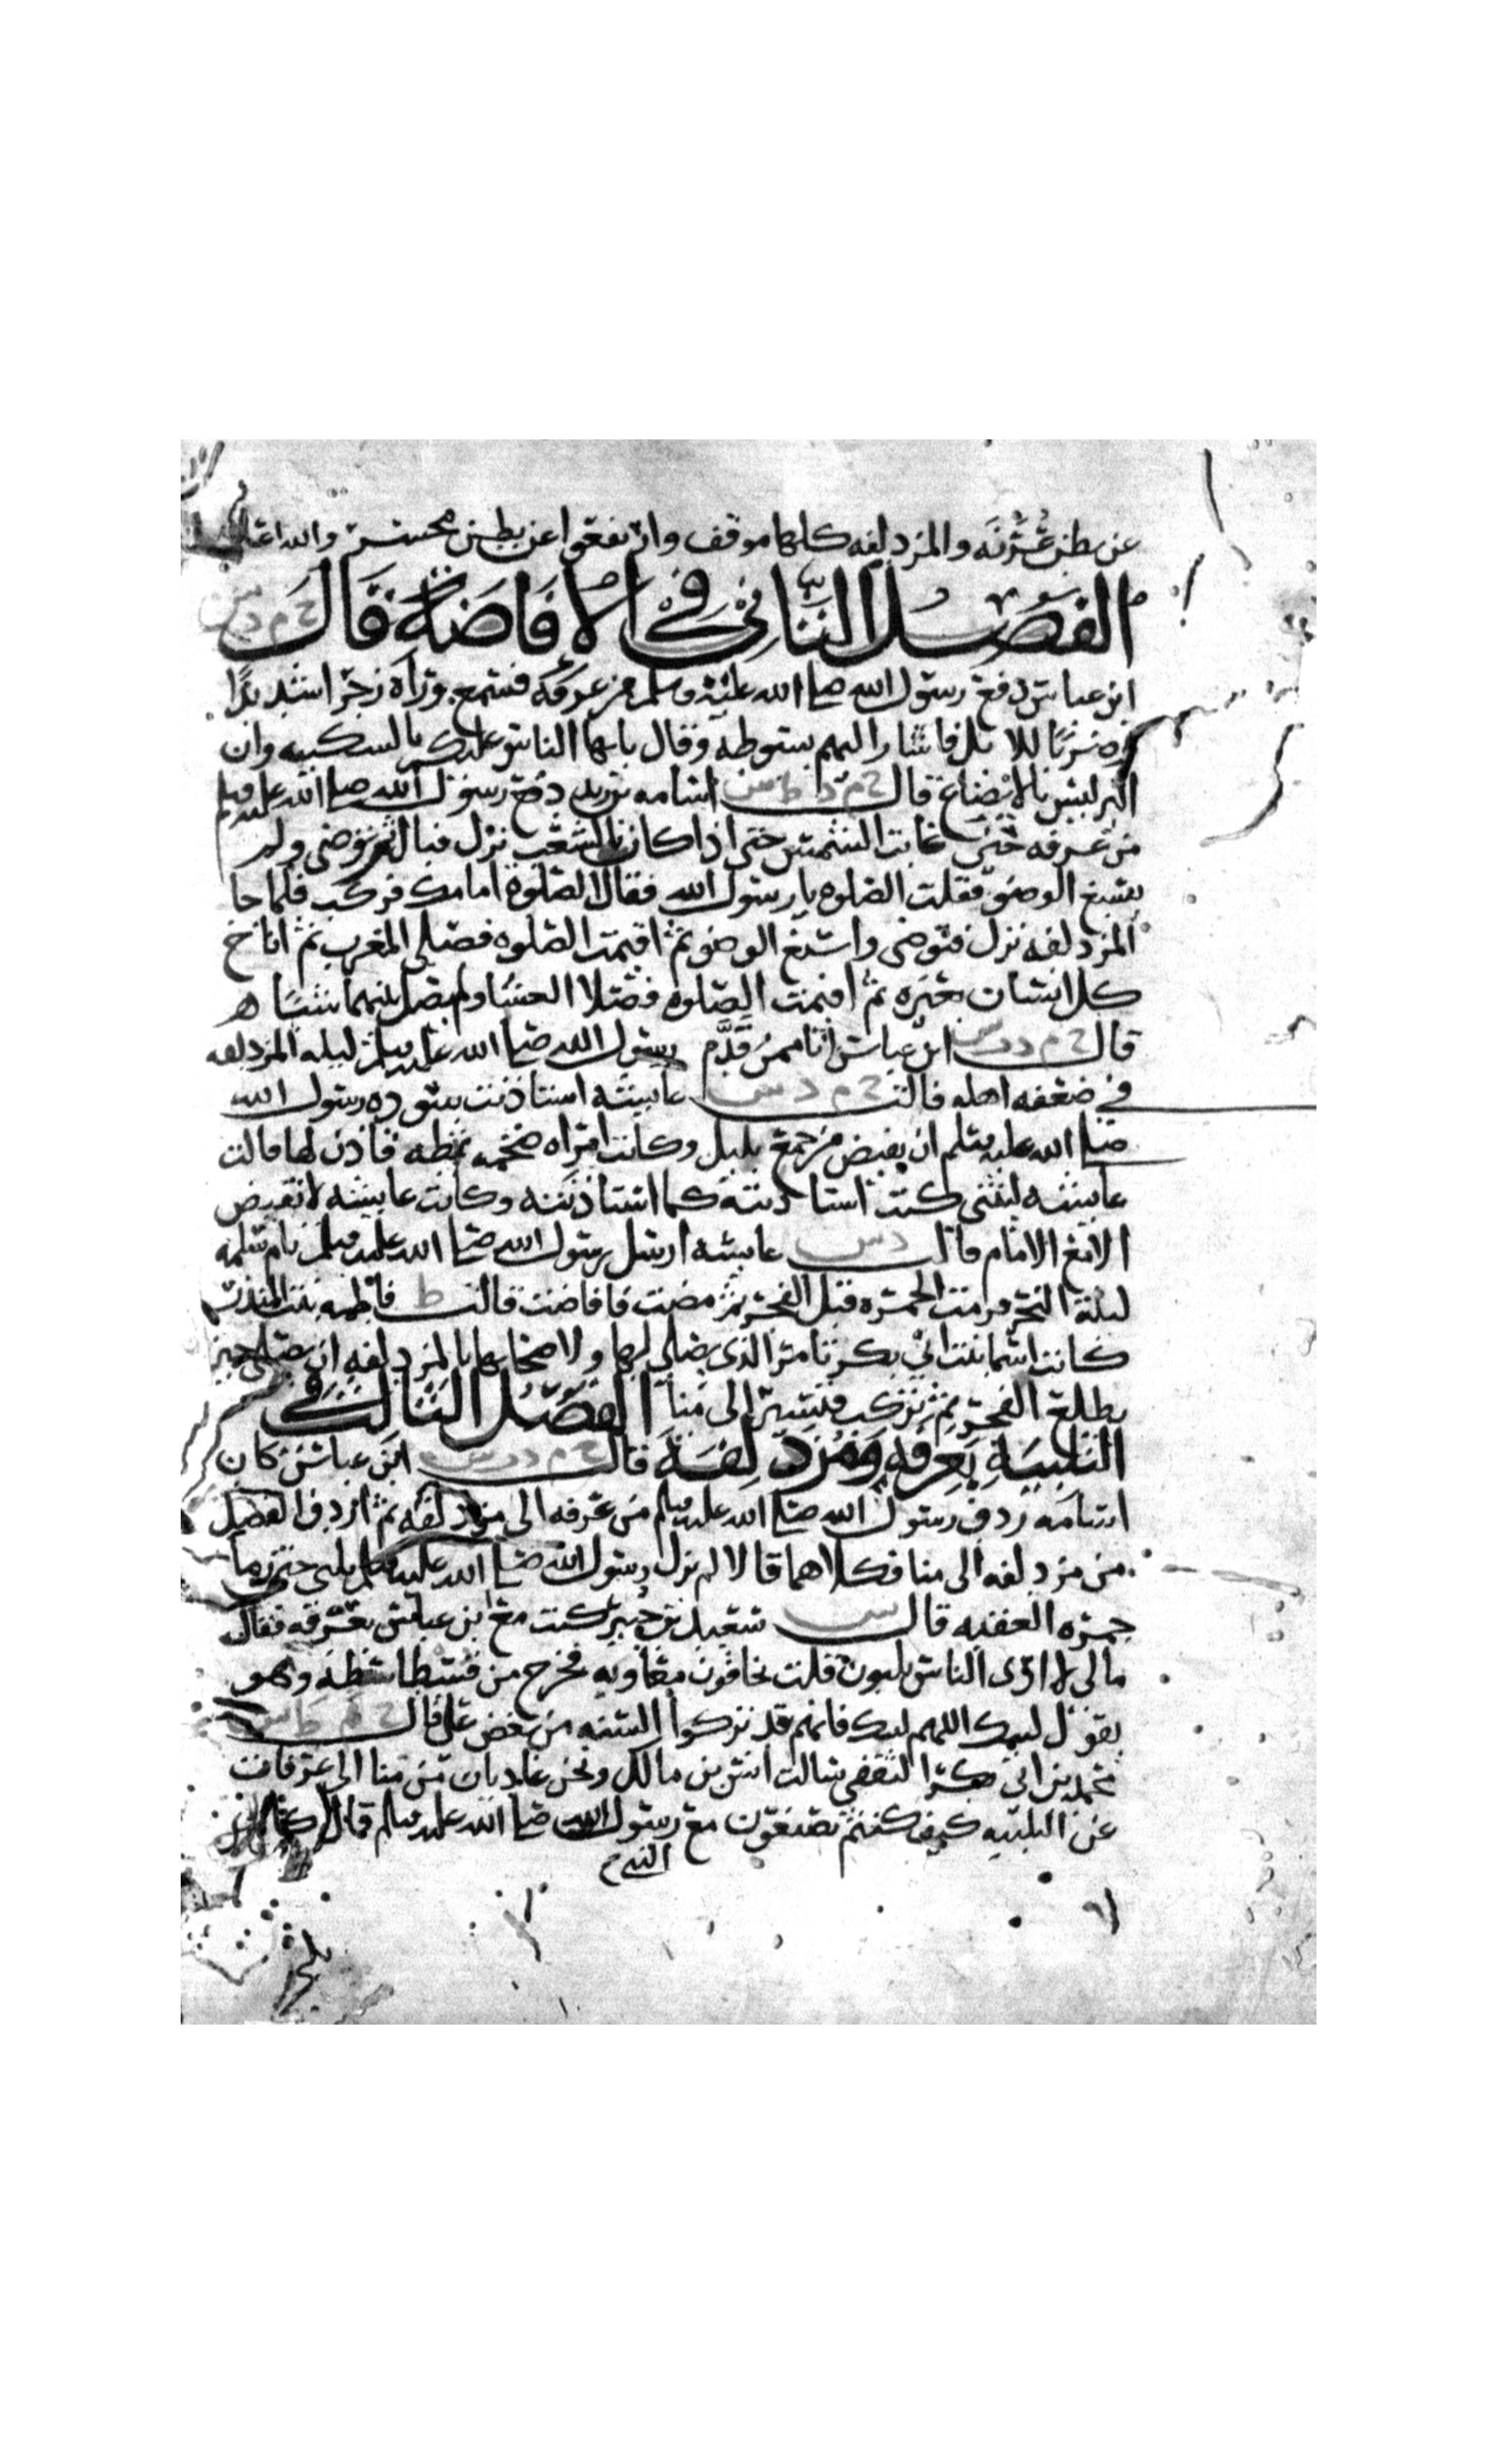 عن بطن عُرَنَه والمزدلفه كلها موقف وارتفعوا عن بطن محسر والله اعلم
الفصل الثاني في الافاضة قال خ م د س
ابن عباس دفع رسول الله صلى الله عليه وسلم من عرفه فسمع ورآه زجرا شديدًا
وضربًا للابل فاشار اليهم بسوطه وقال يايها الناس عليكم بالسكينه وان
البر ليس بالايضاع قال خ م د ط س اسامه بن زيد دفع رسول الله صلى الله عليه وسلم
من عرفه حتى غابت الشمس حتى اذا كان بالشعب نزل فبال ثم توضى ولم
يسبغ الوضو فقلت الصلوه يا رسول الله فقال الصلوة امامك فركب فلما جا
المزدلفه نزل فتوضى واسبغ الوضو ثم اقيمت الصلوه فصلى المغرب ثم اناخ
كل انسان بعيره ثم اقيمت الصلوه فصلا العشا ولم يصل بينهما شيئًا ه
قال خ م د س ابن عباس انا ممن قَدَّم رسول الله صلى الله عليه وسلم ليله المزدلفه
في ضعفه اهله قالت خ م د س عايشه استاذنت سوده رسول الله
صلى الله عليه وسلم ان يفيض من جمع بليل وكانت امراه ضخمه ثبطه فاذن لها قالت
عايشه ليتني كنت استاذنته كما استاذنته وكانت عايشه لا تفيض
الا مع الامام قالت د س عايشه ارسل رسول الله صلى الله عليه وسلم بام سلمه
ليلة النحر فرمت الجمره قبل الفجر ثم مضت فافاضت قالت ط فاطمه بنت المنذر
كانت اسما بنت ابي بكر تامر الذي يصلي لها ولاصحابها بالمزدلفه ان يصلي حين
يطلع الفجر ثم تركب فتسير الى منا الفصل الثالث في
التلبية بعرفه ومزدلفة قال خ م د س ابن عباس كان
اسامه ردف رسول الله صلى الله عليه وسلم من عرفه الى مزدلفه ثم اردف الفضل
من مزدلفه الى منا فكلاهما قالا لم يزل رسول الله صلى الله عليه وسلم يلبى حتى رما
جمره العقبه قال س سعيد بن جبير كنت مع ابن عباس بعرفه فقال
مالي لا ارى الناس يلبون قلت يخافون معاويه فخرج من فسطاطه وهو
يقول لبيك اللهم لبيك فانهم قد تركوا السنه من بغض علي قال خ م ط س
محمد بن ابي بكر الثقفي سالت انس بن مالك ونحن غاديان من منا الى عرفات
عن التلبيه كيف كنتم تصنعون مع رسول الله صلى الله عليه وسلم قال كان